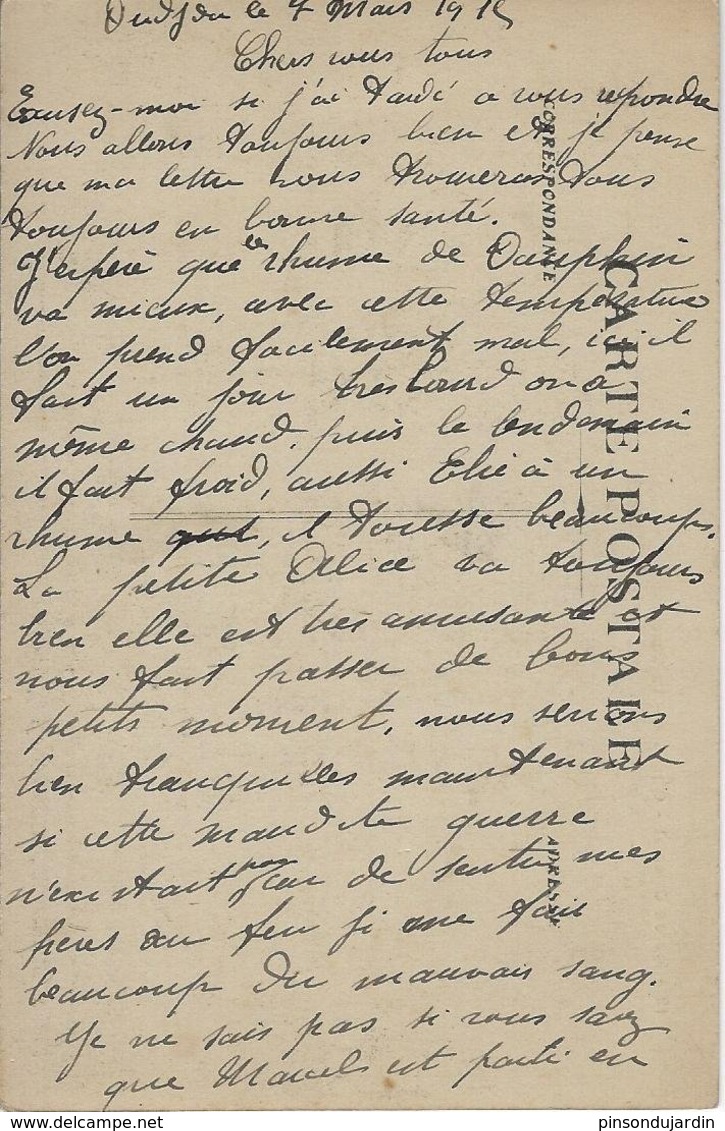 Oudjda le 7 Mars 1915
Chers vous tous
Excusez-moi si j'ai tardé a vous repondre
Nous allons toujours bien et je pense
que ma lettre vous trouveras tous
toujours en bonne santé.
J'espère que le rhume de Dauphin
va mieux, avec cette température
l'on prend facilement mal, ici il
fait un jour très chaud on a
même chaud, puis le lendemain
il fait froid, aussi Elie à un
rhume qui, il tousse beaucoups.
La petite Alice va toujours
bien elle est très amusante et
nous fait passer de bons
petits moment, nous serions
bien tranquilles maintenant
si cette maudite guerre
n'existait pas car de sentir mes
frères au feu je me fais
beaucoup du mauvais sang.
Je ne sais pas si vous savez
que Marcel est parti en
CORRESPONDANCE
CARTE POSTALE
ADRESSE
pinsondujardin